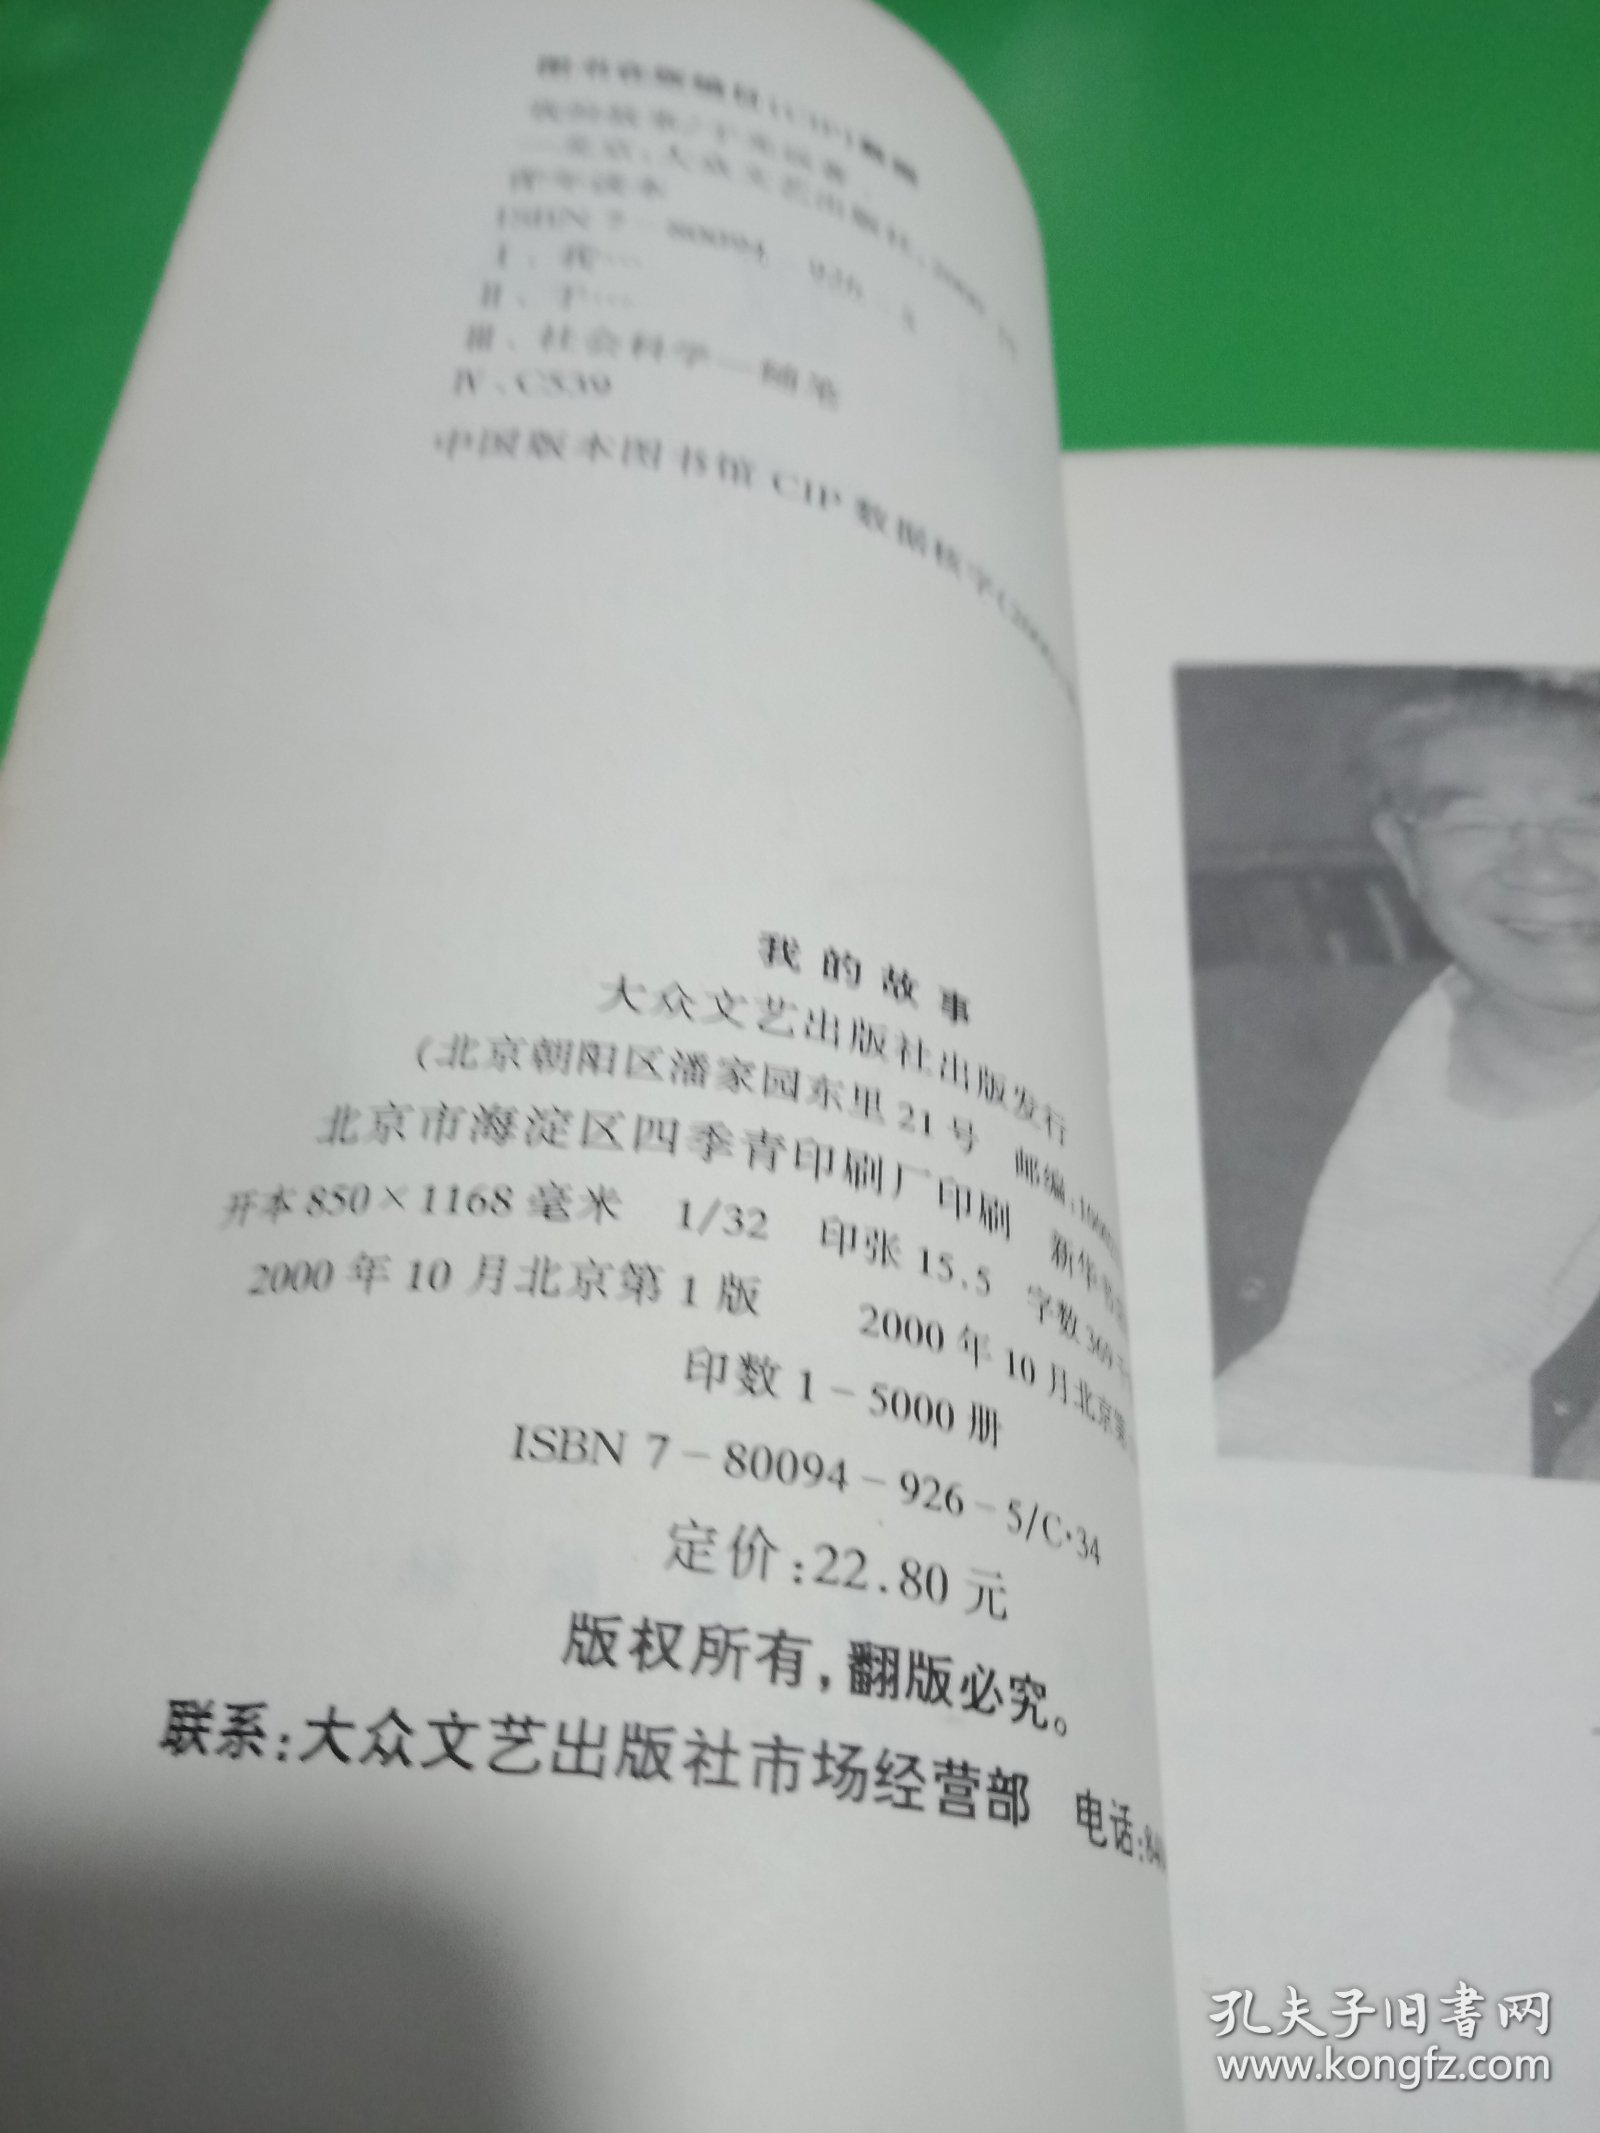 图书在版编目(CIP)数据
我的故事/于
—北京:大众文艺出版社,2000
青年读本
ISBN 7-80094-926-5
Ⅰ、我…
Ⅱ、于…
Ⅲ、社会科学—随笔
Ⅳ、C539
中国版本图书馆CIP数据核字(2000)
我的故事
大众文艺出版社出版发行
(北京朝阳区潘家园东里21号 邮编:1000
北京市海淀区四季青印刷厂印刷 新华书店
开本850×1168毫米 1/32 印张15.5 字数369千
2000年10月北京第1版 2000年10月北京第
印数1-5000册
ISBN 7-80094-926-5/C·34
定价:22.80元
版权所有,翻版必究。
联系:大众文艺出版社市场经营部 电话:84
孔夫子旧书网
www.kongfz.com